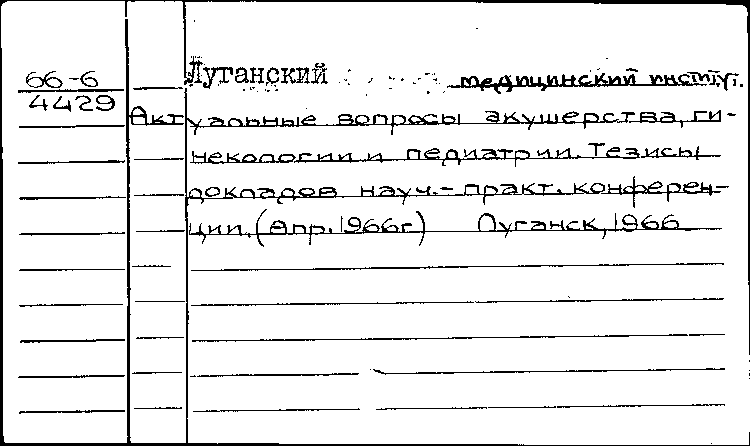 66-6
4429
Луганский медицинский институт.
Актуальные вопросы акушерства, ги-
некологии и педиатрии. Тезисы
докладов науч.-практ. конферен-
ции. (Апр. 1966г) Луганск, 1966